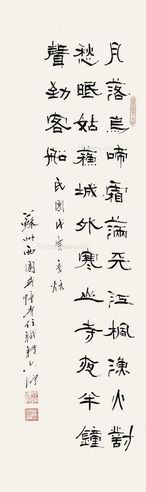 月落烏啼霜滿天江楓漁火對
愁眠姑蘇城外寒山寺夜半鐘
聲到客船
民國戊寅
蘇州西園